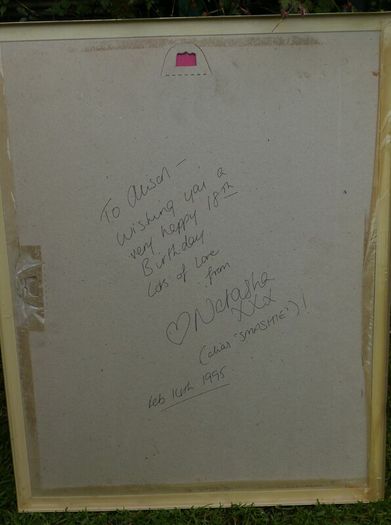 To Alison —
Wishing you a
very happy 18th
Birthday
Lots of Love
from
♡ Natasha
XXX
(alias 'SMASHIE')!
Feb 14th 1995